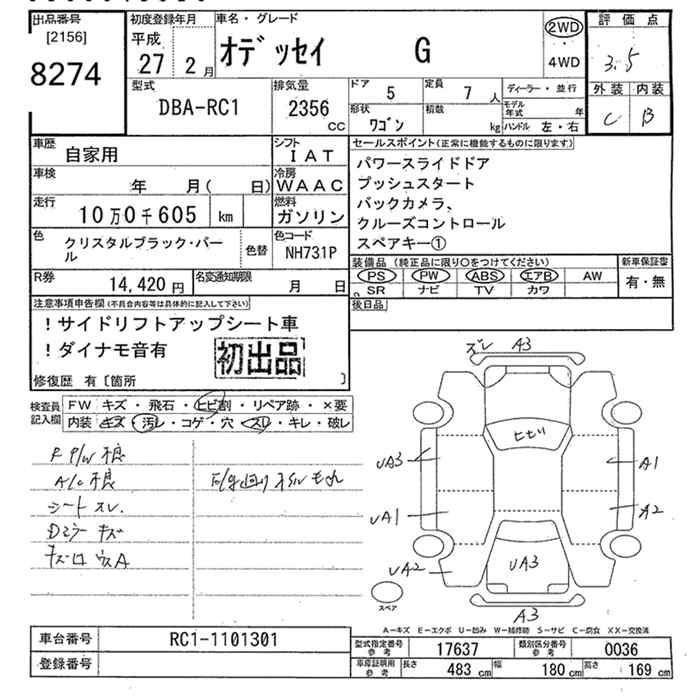 出品番号
[2156]
8274
初度登録年月
平成
27 2月
車名・グレード
オデッセイ G
2WD
・
4WD
評価点
3.5
外装 内装
C B
型式
DBA-RC1
排気量
2356
CC
ドア 5
定員 7 人
ディーラー・並行
形状
ワゴン
積数 kg
モデル年式 年
ハンドル 左・右
車歴
自家用
シフト
IAT
車検 年 月( 日)
冷房
WAAC
走行
10万0千605 km
燃料
ガソリン
色
クリスタルブラック・パール
色替
色コード
NH731P
セールスポイント(正常に機能するものに限ります)
パワースライドドア
プッシュスタート
バックカメラ、
クルーズコントロール
スペアキー①
R券
14,420円
名変通知期限 月 日
装備品(純正品に限り〇をつけてください)
PS PW ABS エアB AW
SR ナビ TV カワ
新車保証書
有・無
後日品
注意事項申告欄(不具合内容等は具体的に記入して下さい)
!サイドリフトアップシート車
!ダイナモ音有
初出品
修復歴 有〔箇所 〕
検査員記入欄
FW キズ・飛石・ヒビ割・リペア跡・×要
内装 キズ・汚レ・コゲ・穴・スレ・キレ・破レ
R P/W 不良
A/C 不良
シート スレ
Dミラー キズ
ズレ A3
ヒビ
UA3
A1
UA1
A2
UA2
UA3
A3
スペア
A-キズ E-エクボ U-凹み W-補修跡 S-サビ C-腐食 XX-交換済
車台番号 RC1-1101301
登録番号
型式指定番号 参考 17637
類別区分番号 参考 0036
車庫証明用 参考 長さ 483 cm 幅 180 cm 高さ 169 cm